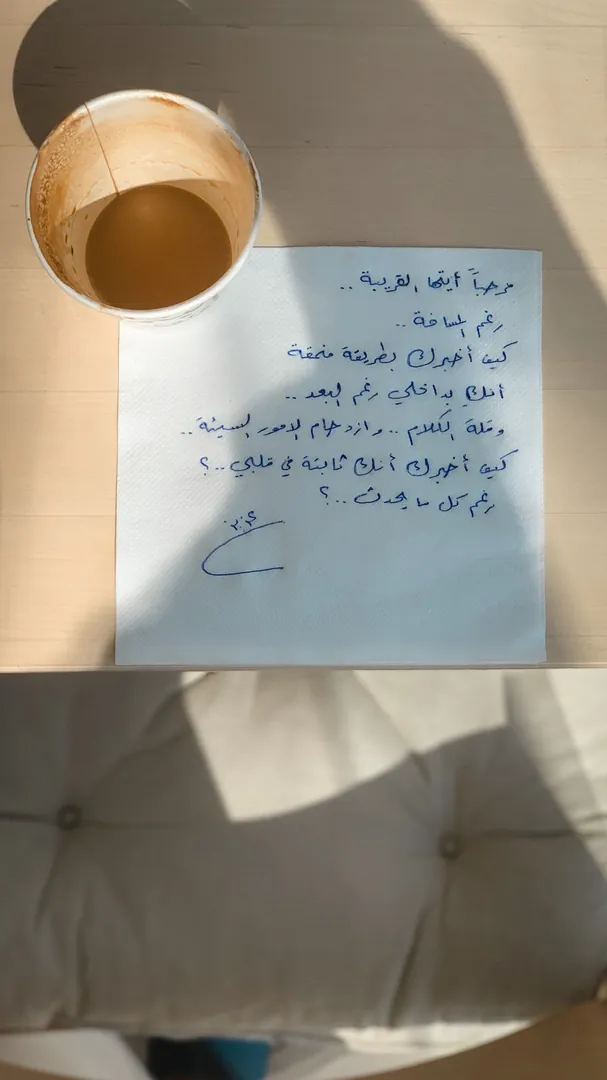 مرحباً أيتها القريبة ..
رغم المسافة ..
كيف أخبرك بطريقة منمقة
أنكِ بداخلي رغم البعد ..
وقلة الكلام .. وازدحام الامور السيئة ..
كيف أخبرك أنك ثابتة في قلبي .. ؟
رغم كل ما يحدث .. ؟